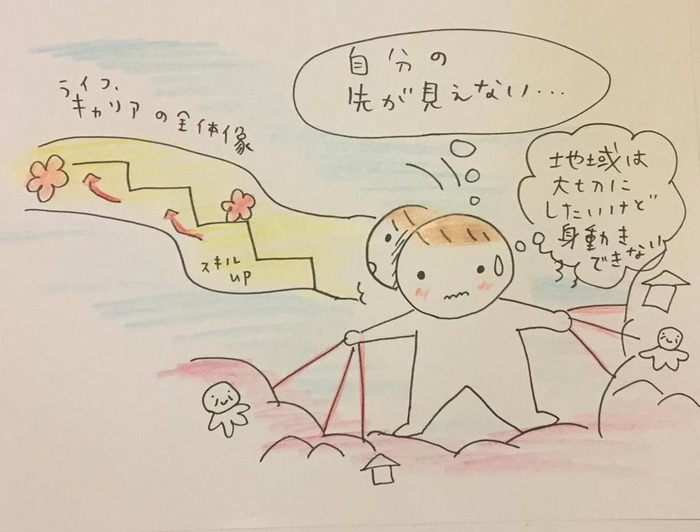 自分の
先が見えない…
ライフ、
キャリアの全体像
地域は
大切に
したいけど
身動き
できない
スキル
UP